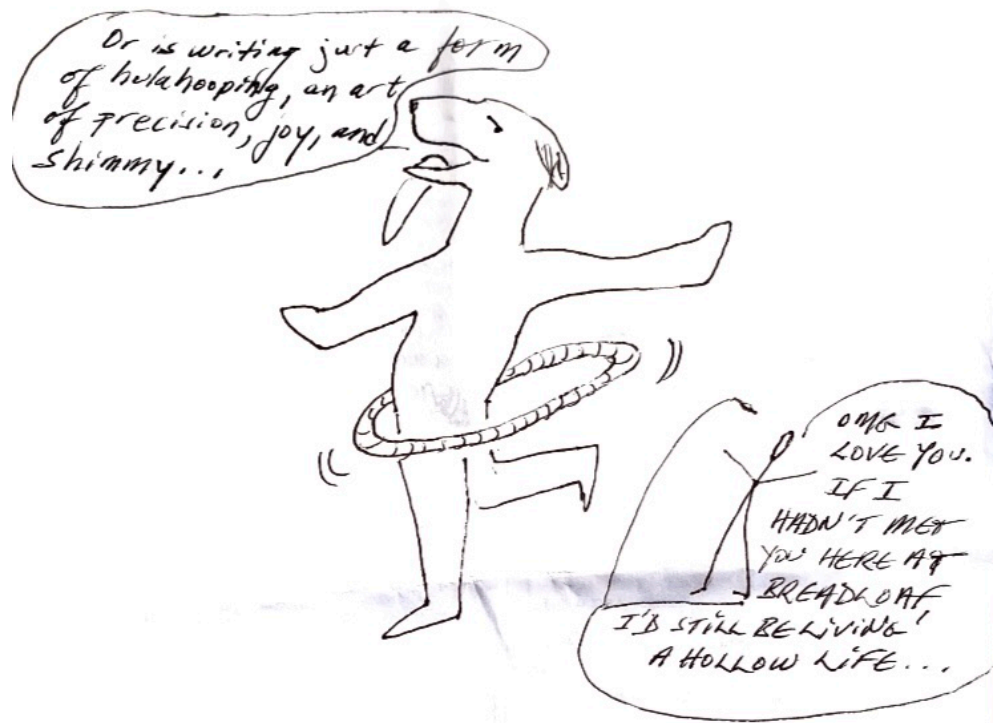 Or is writing just a form
of hulahooping, an art
of precision, joy, and
shimmy...
OMG I
LOVE YOU.
IF I
HADN'T MET
YOU HERE AT
BREADLOAF,
I'D STILL BE LIVING
A HOLLOW LIFE...